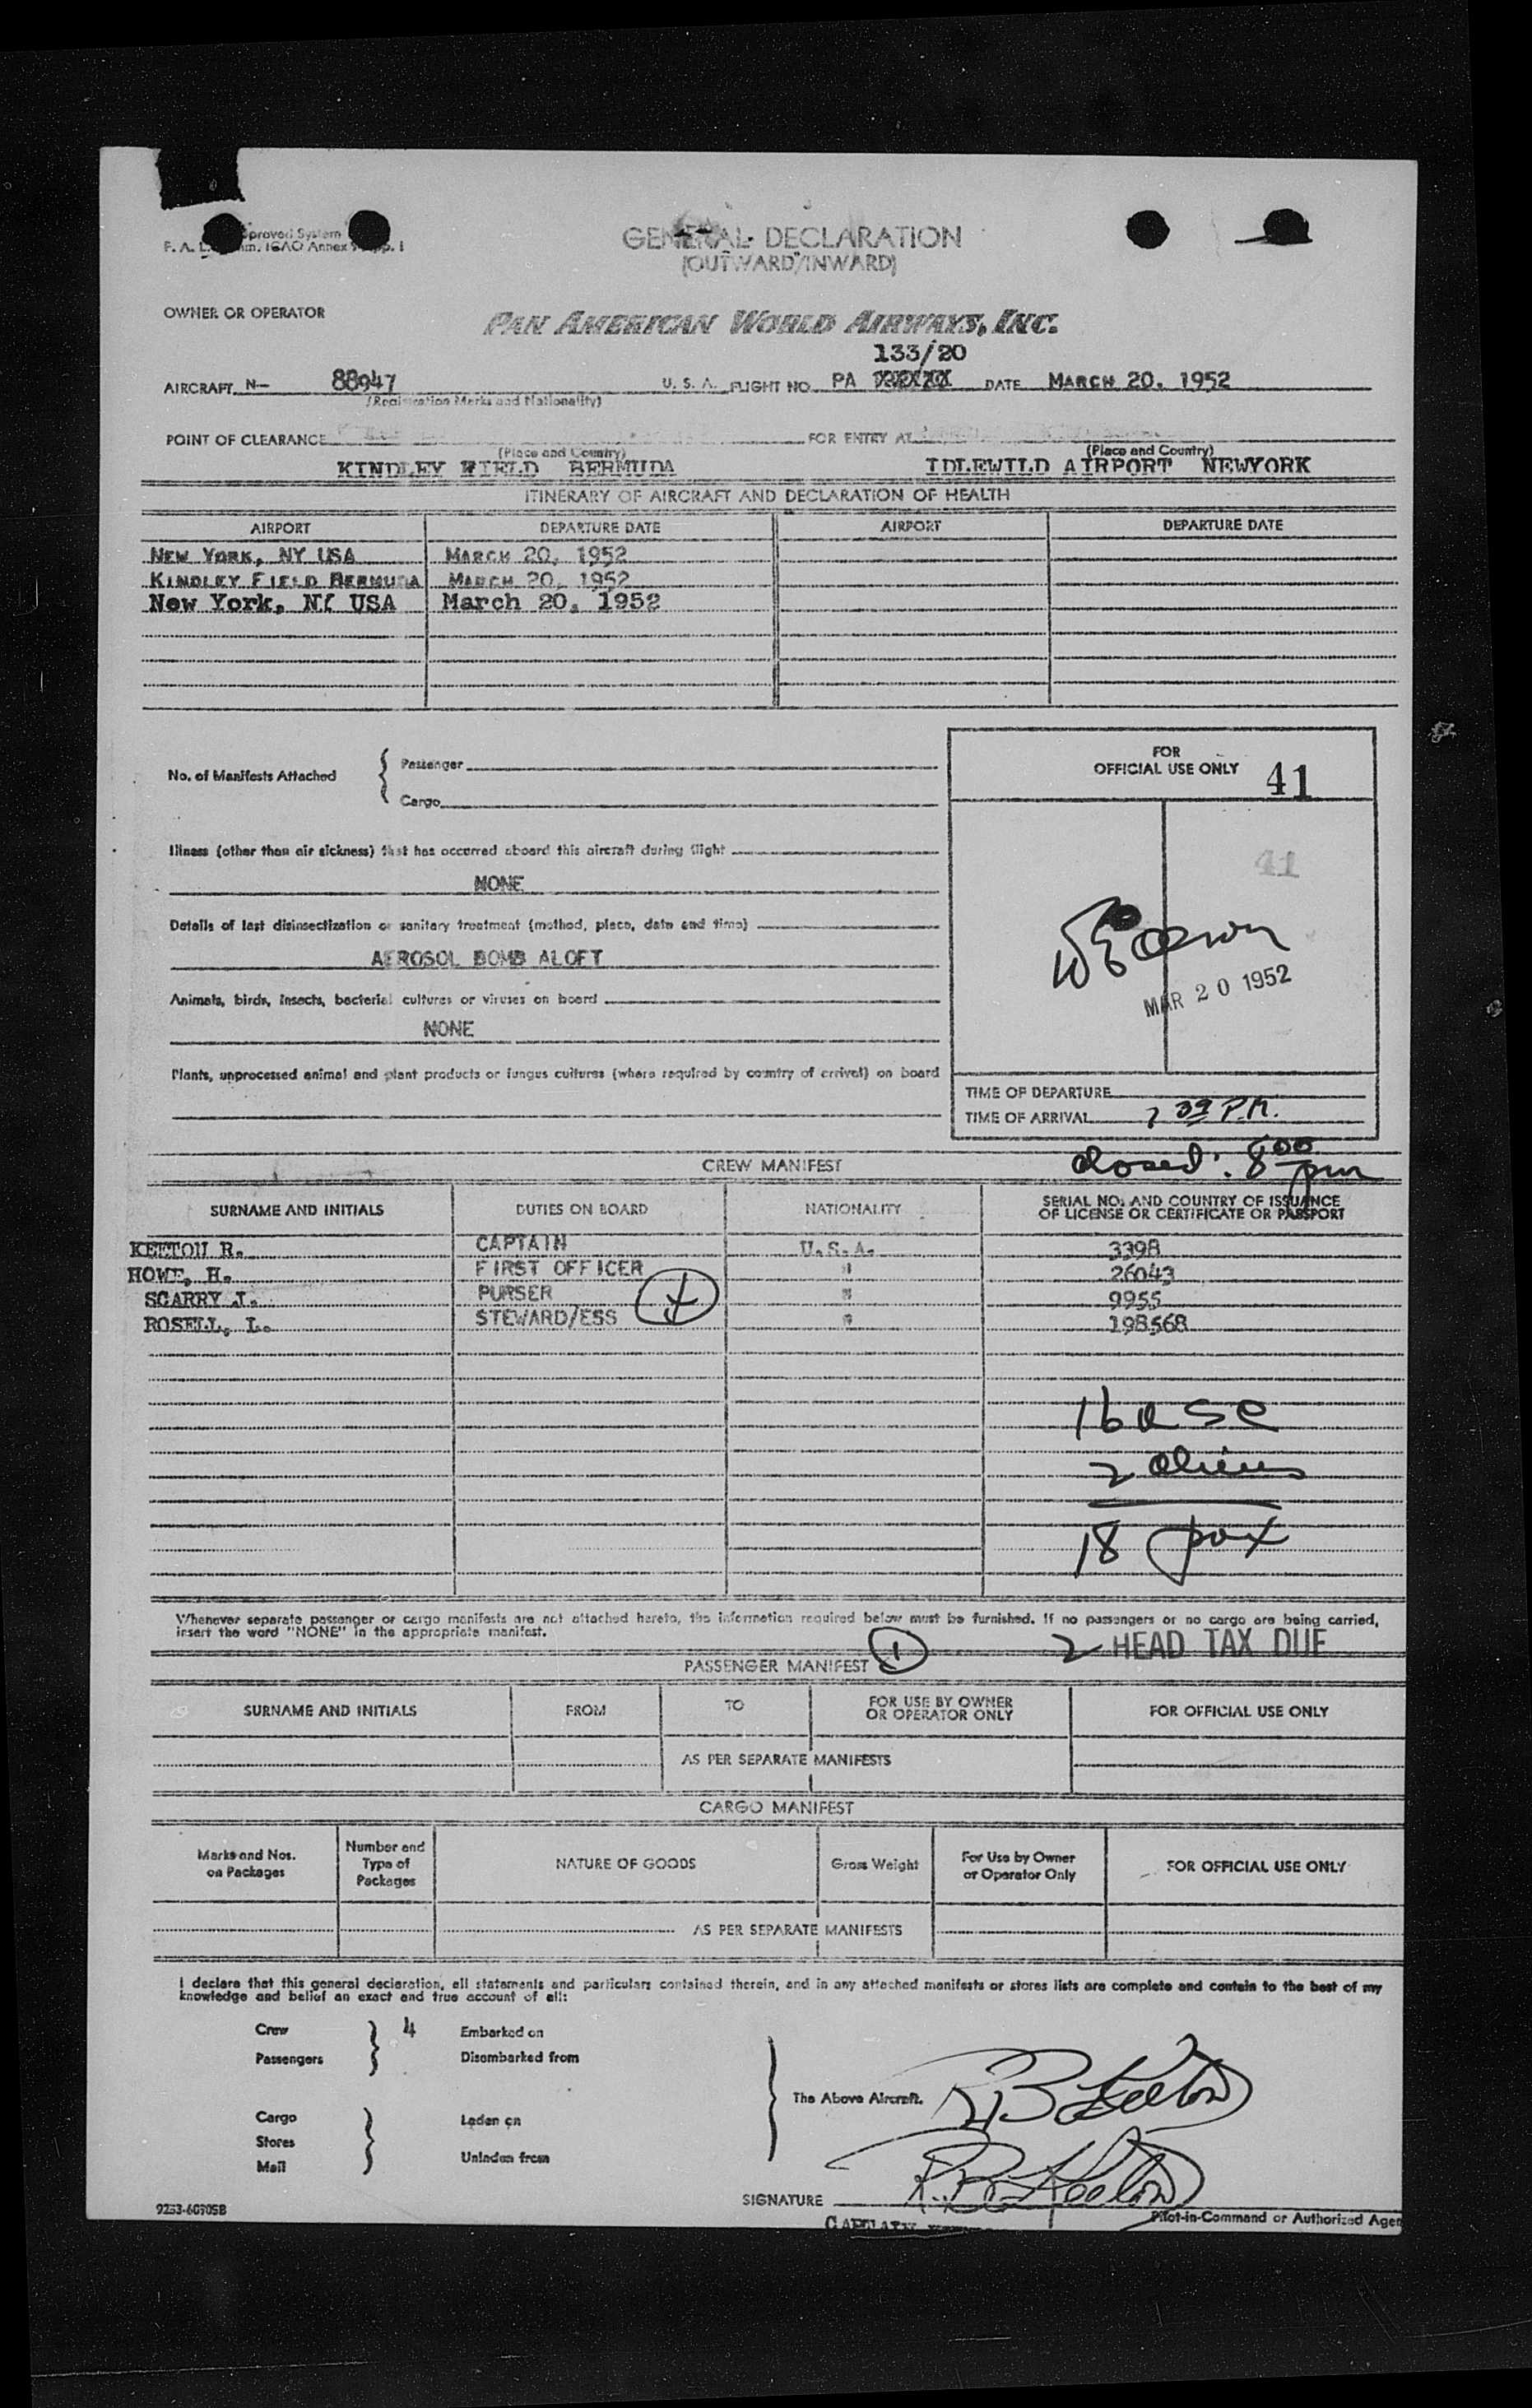 GENERAL DECLARATION
(OUTWARD/INWARD)
OWNER OR OPERATOR
PAN AMERICAN WORLD AIRWAYS, INC.
133/20
AIRCRAFT N- 88947 U. S. A. FLIGHT NO. PA DATE MARCH 20, 1952
(Registration Marks and Nationality)
POINT OF CLEARANCE FOR ENTRY AT
(Place and Country) (Place and Country)
KINDLEY FIELD BERMUDA IDLEWILD AIRPORT NEWYORK
ITINERARY OF AIRCRAFT AND DECLARATION OF HEALTH
AIRPORT DEPARTURE DATE AIRPORT DEPARTURE DATE
NEW YORK, NY USA MARCH 20, 1952
KINDLEY FIELD BERMUDA MARCH 20, 1952
New York, NY USA March 20, 1952
FOR
OFFICIAL USE ONLY 41
No. of Manifests Attached { Passenger
Cargo
41
Illness (other than air sickness) that has occurred aboard this aircraft during flight
NONE
Details of last disinsectization or sanitary treatment (method, place, date and time)
AEROSOL BOMB ALOFT
MAR 20 1952
Animals, birds, insects, bacterial cultures or viruses on board
NONE
Plants, unprocessed animal and plant products or fungus cultures (where required by country of arrival) on board
TIME OF DEPARTURE
TIME OF ARRIVAL 7 39 P.M.
closed: 8 00 pm
CREW MANIFEST
SURNAME AND INITIALS DUTIES ON BOARD NATIONALITY SERIAL NO. AND COUNTRY OF ISSUANCE
OF LICENSE OR CERTIFICATE OR PASSPORT
KEETON R. CAPTAIN U.S.A. 3398
HOWE, H. FIRST OFFICER " 26043
SCARRY J. PURSER " 9955
ROSELL, L. STEWARD/ESS " 198568
16 usc
2 aliens
18 pax
Whenever separate passenger or cargo manifests are not attached hereto, the information required below must be furnished. If no passengers or no cargo are being carried,
insert the word "NONE" in the appropriate manifest.
2 HEAD TAX DUE
PASSENGER MANIFEST 1
SURNAME AND INITIALS FROM TO FOR USE BY OWNER
OR OPERATOR ONLY FOR OFFICIAL USE ONLY
AS PER SEPARATE MANIFESTS
CARGO MANIFEST
Marks and Nos.
on Packages Number and
Type of
Packages NATURE OF GOODS Gross Weight For Use by Owner
or Operator Only FOR OFFICIAL USE ONLY
AS PER SEPARATE MANIFESTS
I declare that this general declaration, all statements and particulars contained therein, and in any attached manifests or stores lists are complete and contain to the best of my
knowledge and belief an exact and true account of all:
Crew 4 Embarked on
Passengers Disembarked from
The Above Aircraft. R B Keeton
Cargo Laden on
Stores
Mail Unladen from
SIGNATURE R. B. Keeton
Pilot-in-Command or Authorized Agen
CAPTAIN